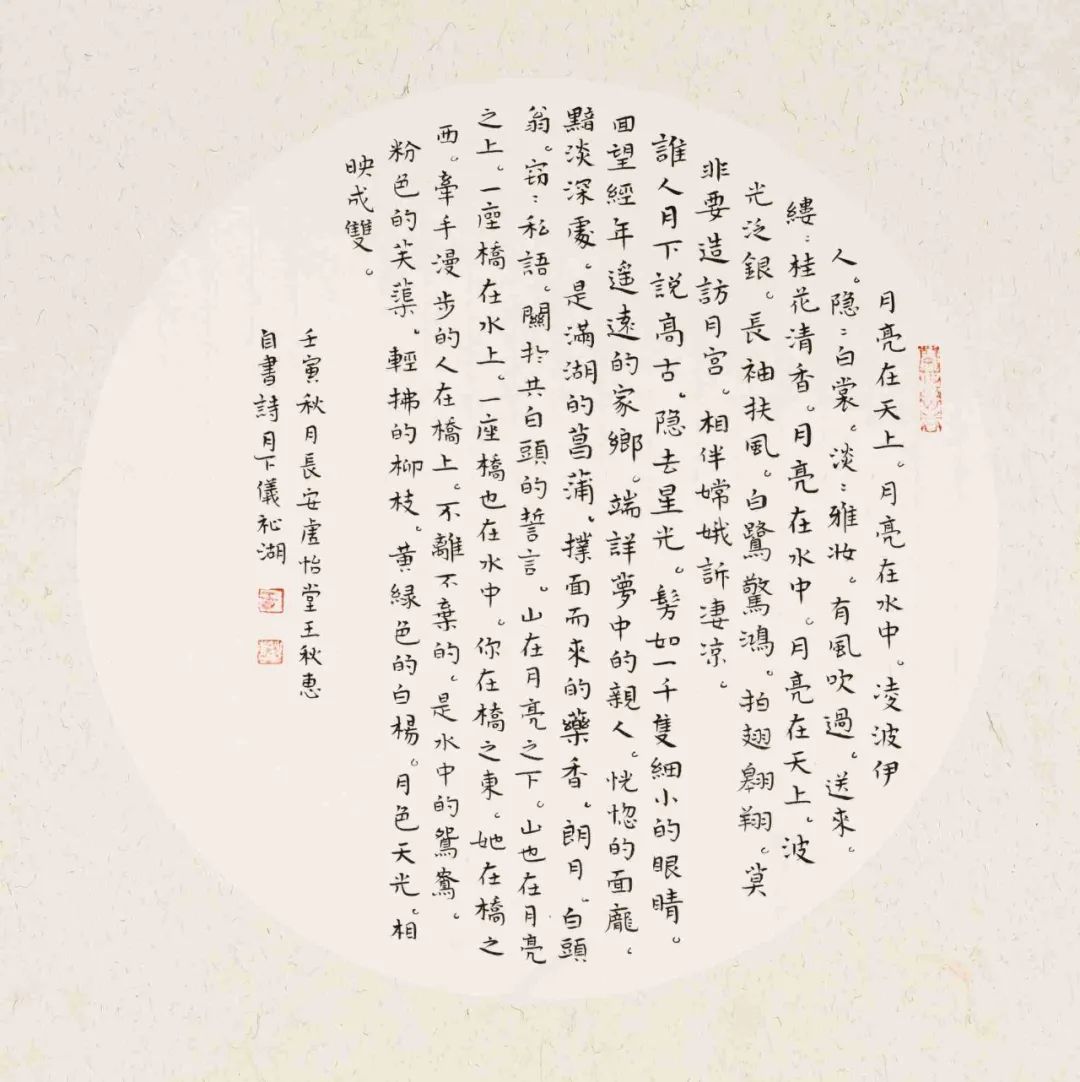 月亮在天上。月亮在水中。凌波伊
人。隐〻白裳。淡〻雅妆。有風吹過。送來。
縷〻桂花清香。月亮在水中。月亮在天上。波
光泛銀。長袖扶風。白鷺驚鴻。拍翅翱翔。莫
非要造訪月宫。相伴嫦娥訴凄凉。
誰人月下説高古。隐去星光。髣如一千隻細小的眼睛。
回望經年遥遠的家鄉。端詳夢中的親人。恍惚的面龐。
黯淡深處。是滿湖的菖蒲。撲面而來的藥香。朗月。白頭
翁。窃〻私語。關於共白頭的誓言。山在月亮之下。山也在月亮
之上。一座橋在水上。一座橋也在水中。你在橋之東。她在橋之
西。牽手漫步的人在橋上。不離不棄的。是水中的鴛鴦。
粉色的芙蕖。輕拂的柳枝。黄緑色的白楊。月色天光。相
映成雙。
壬寅秋月長安虚怡堂王秋惠
自書詩月下儀祉湖